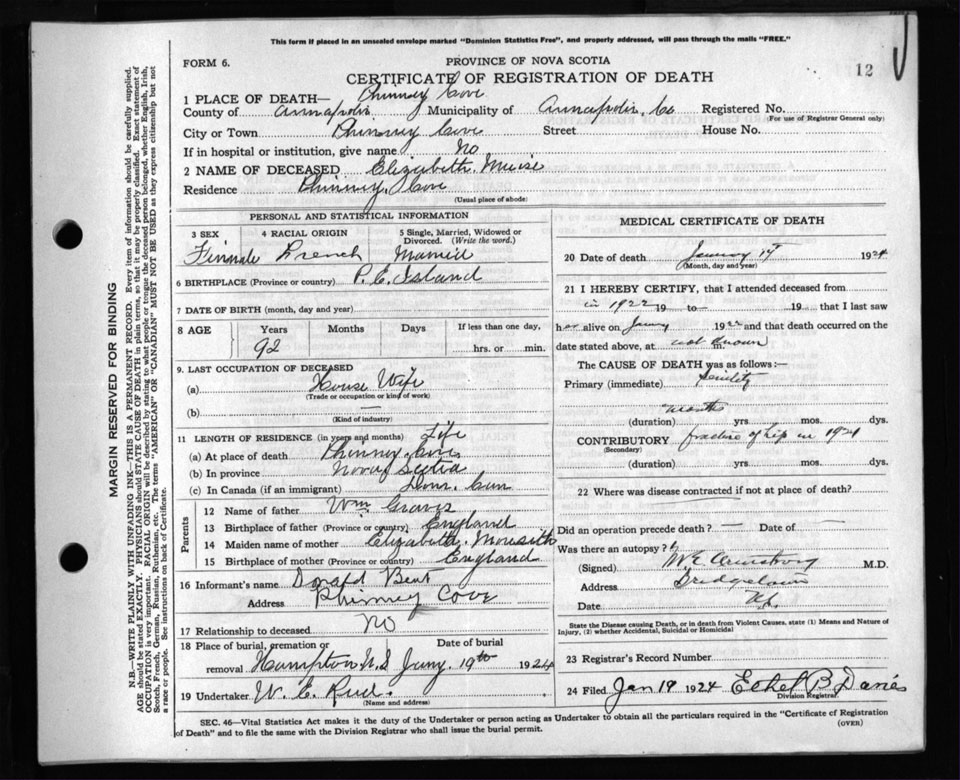 This form if placed in an unsealed envelope marked "Dominion Statistics Free", and properly addressed, will pass through the mails "FREE."
FORM 6.
PROVINCE OF NOVA SCOTIA
12
CERTIFICATE OF REGISTRATION OF DEATH
1 PLACE OF DEATH— Phinney Cove
County of Annapolis Municipality of Annapolis Co Registered No.
(For use of Registrar General only)
City or Town Phinney Cove Street House No.
If in hospital or institution, give name No
2 NAME OF DECEASED Elizabeth Muise
Residence Phinney Cove
(Usual place of abode)
PERSONAL AND STATISTICAL INFORMATION
3 SEX 4 RACIAL ORIGIN 5 Single, Married, Widowed or Divorced. (Write the word.)
Female French Married
6 BIRTHPLACE (Province or country) P. E. Island
7 DATE OF BIRTH (month, day and year)
8 AGE Years Months Days If less than one day,
92 hrs. or min.
9. LAST OCCUPATION OF DECEASED
(a) House Wife
(Trade or occupation or kind of work)
(b) —
(Kind of industry)
11 LENGTH OF RESIDENCE (in years and months) Life
(a) At place of death Phinney Cove
(b) In province Nova Scotia
(c) In Canada (if an immigrant) Dom. Can
Parents
12 Name of father Wm. Graves
13 Birthplace of father (Province or country) England
14 Maiden name of mother Elizabeth
15 Birthplace of mother (Province or country) England
16 Informant's name Donald Bent
Address Phinney Cove
17 Relationship to deceased No
18 Place of burial, cremation or removal Hampton N.S Date of burial Jany. 19th 1924
19 Undertaker W. E. Reid.
(Name and address)
MEDICAL CERTIFICATE OF DEATH
20 Date of death January 17 1924
(Month, day and year)
21 I HEREBY CERTIFY, that I attended deceased from
in 1922 19 to— 19 that I last saw
her alive on Jany 1922 and that death occurred on the
date stated above, at not known m.
The CAUSE OF DEATH was as follows:—
Primary (immediate) Senility
months
(duration) yrs. mos. dys.
CONTRIBUTORY fracture of hip in 1921
(Secondary)
(duration) yrs. mos. dys.
22 Where was disease contracted if not at place of death?
Did an operation precede death? — Date of —
Was there an autopsy?
(Signed) M E Armstrong M.D.
Address Bridgetown
Date NS.
State the Disease causing Death, or in death from Violent Causes, state (1) Means and Nature of Injury, (2) whether Accidental, Suicidal or Homicidal
23 Registrar's Record Number
24 Filed Jan 19 1924 Ethel B Davies
Division Registrar.
SEC. 46—Vital Statistics Act makes it the duty of the Undertaker or person acting as Undertaker to obtain all the particulars required in the "Certificate of Registration
of Death" and to file the same with the Division Registrar who shall issue the burial permit.
(OVER)
MARGIN RESERVED FOR BINDING
N.B.—WRITE PLAINLY WITH UNFADING INK—THIS IS A PERMANENT RECORD. Every item of information should be carefully supplied.
AGE should be stated EXACTLY. PHYSICIANS should STATE CAUSE OF DEATH in plain terms, so that it may be properly classified. Exact statement of
OCCUPATION is very important. RACIAL ORIGIN will be described by stating to what people or tongue the deceased person belonged, whether English, Irish,
Scotch, French, German, Russian, Ruthenian, etc. The terms "AMERICAN" or "CANADIAN" MUST NOT BE USED as they express citizenship but not
a race or people. See instructions on back of Certificate.